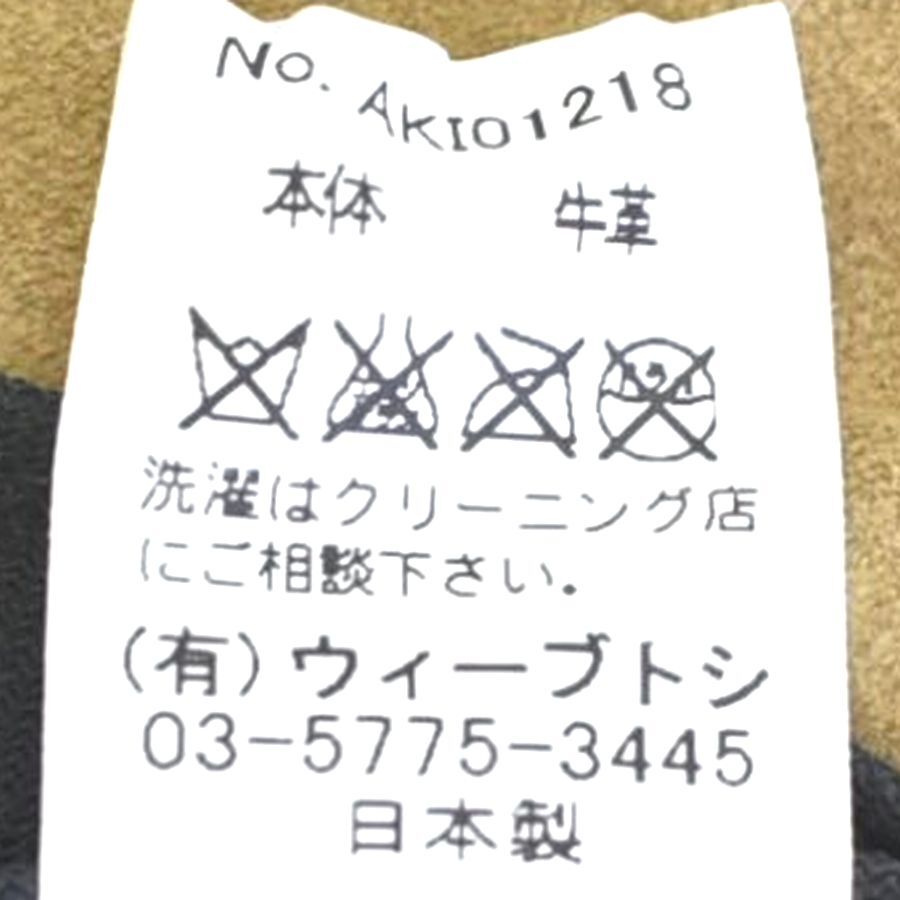 No. AKI01218
本体 牛革
洗濯はクリーニング店
にご相談下さい。
(有)ウィーブトシ
03-5775-3445
日本製